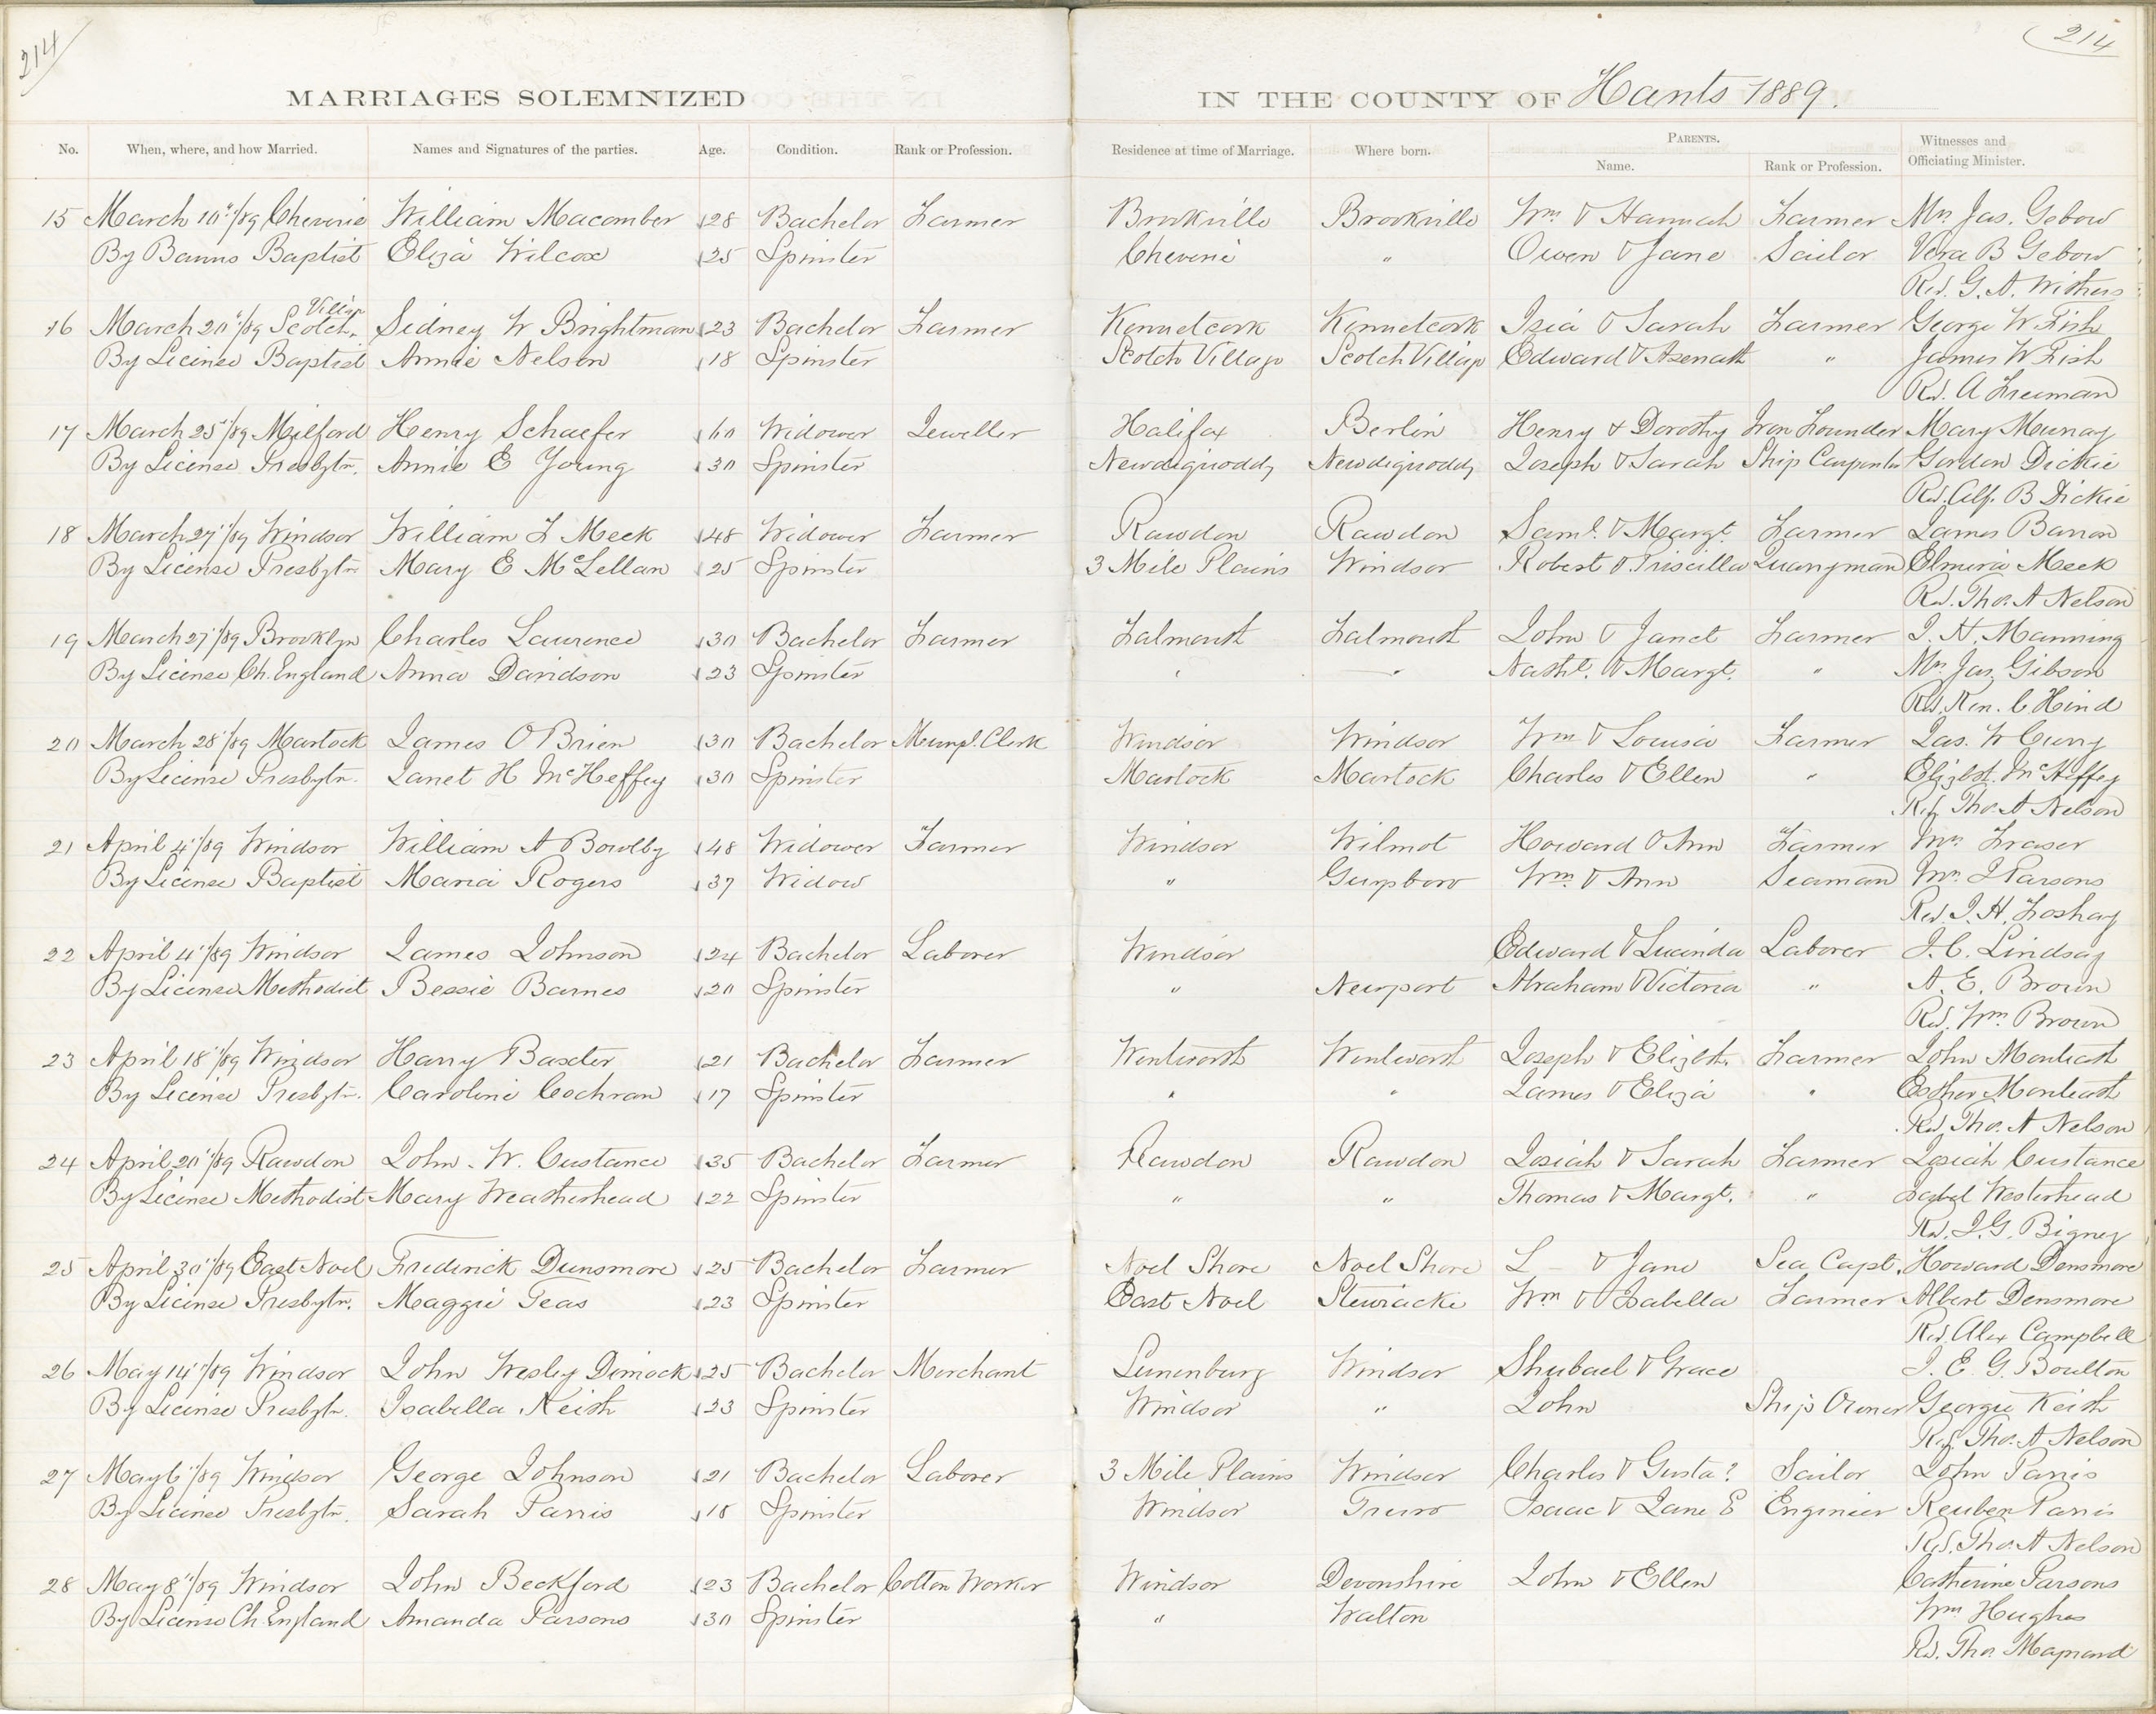 214
214
MARRIAGES SOLEMNIZED IN THE COUNTY OF Hants 1889.
No. When, where, and how Married. Names and Signatures of the parties. Age. Condition. Rank or Profession. Residence at time of Marriage. Where born. PARENTS. Name. Rank or Profession. Witnesses and Officiating Minister.
15 March 10"/89 Cheverie William Macomber 28 Bachelor Farmer Brookville Brookville Wm & Hannah Farmer Mrs Jas. Gebow
By Banns Baptist Eliza Wilcox 25 Spinster Cheverie " Owen & Jane Sailor Vera B Gebow
Rev. G. A. Withers
16 March 20"/89 Scotch Village Sidney W Brightman 23 Bachelor Farmer Kennetcook Kennetcook Isia & Sarah Farmer George W Fish
By License Baptist Annie Nelson 18 Spinster Scotch Village Scotch Village Edward & Asenath " James W Fish
Rev. A Freeman
17 March 25"/89 Milford Henry Schaefer 60 Widower Jeweller Halifax Berlin Henry & Dorothy Iron Founder Mary Murray
By License Presbytn. Annie E Young 30 Spinster Newdiquoddy Newdiquoddy Joseph & Sarah Ship Carpenter Gordon Dickie
Rev. Alf. B Dickie
18 March 27"/89 Windsor William F Meek 48 Widower Farmer Rawdon Rawdon Saml. & Margt. Farmer James Barron
By License Presbytn Mary E McLellan 25 Spinster 3 Mile Plains Windsor Robert & Priscilla Quarryman Elmira Meek
Rev. Thos. A Nelson
19 March 27"/89 Brooklyn Charles Laurence 30 Bachelor Farmer Falmouth Falmouth John & Janet Farmer J. H. Manning
By License Ch. England Anna Davidson 23 Spinster " " Nathl. & Margt. " Mrs Jas. Gibson
Rev. Ken. C Hind
20 March 28"/89 Martock James O Brien 30 Bachelor Munpl. Clerk Windsor Windsor Wm & Louisa Farmer Jas. W Curry
By License Presbytn. Janet H McHeffey 30 Spinster Martock Martock Charles & Ellen " Elizbth. McHeffey
Rev. Thos. A Nelson
21 April 4"/89 Windsor William A Bowlby 48 Widower Farmer Windsor Wilmot Howard & Ann Farmer Mrs Fraser
By License Baptist Maria Rogers 37 Widow " Guysboro Wm. & Ann Seaman Mrs. J Parsons
Rev. J. H. Foshay
22 April 4"/89 Windsor James Johnson 24 Bachelor Laborer Windsor Edward & Lucinda Laborer J. C. Lindsay
By License Methodist Bessie Barnes 20 Spinster " Newport Abraham & Victoria " A. E. Brown
Rev. Wm. Brown
23 April 18"/89 Windsor Harry Baxter 21 Bachelor Farmer Wentworth Wentworth Joseph & Elizbth. Farmer John Monteath
By License Presbytn. Caroline Cochran 17 Spinster " " James & Eliza " Esther Monteath
Rev. Thos. A Nelson
24 April 20"/89 Rawdon John. W. Custance 35 Bachelor Farmer Rawdon Rawdon Josiah & Sarah Farmer Josiah Custance
By License Methodist Mary Weatherhead 22 Spinster " " Thomas & Margt. " Isabel Westerhead
Rev. J. G. Bigney
25 April 30"/89 East Noel Frederick Dunsmore 25 Bachelor Farmer Noel Shore Noel Shore L — & Jane Sea Capt. Howard Densmore
By License Presbytn. Maggie Geas 23 Spinster East Noel Stewiacke Wm & Isabella Farmer Albert Densmore
Rev. Alex Campbell
26 May 14"/89 Windsor John Wesley Dimock 25 Bachelor Merchant Lunenburg Windsor Shubael & Grace J. E. G. Boulton
By License Presbytn. Isabella Keith 23 Spinster Windsor " John Ship Owner Georgie Keith
Rev. Thos. A Nelson
27 May 6"/89 Windsor George Johnson 21 Bachelor Laborer 3 Mile Plains Windsor Charles & Gusta? Sailor John Parris
By License Presbytn. Sarah Parris 18 Spinster Windsor Truro Isaac & Jane E Engineer Reuben Parris
Rev. Thos. A Nelson
28 May 8"/89 Windsor John Beckford 23 Bachelor Cotton Worker Windsor Devonshire John & Ellen Catherine Parsons
By License Ch. England Amanda Parsons 30 Spinster " Walton Wm Hughes
Rev. Thos Maynard